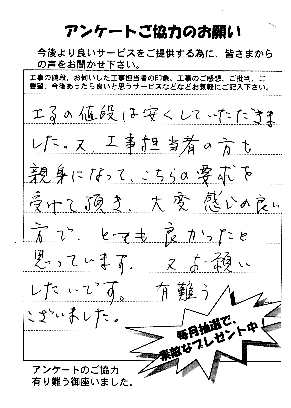 アンケートご協力のお願い
今後より良いサービスをご提供する為に、皆さまから
の声をお聞かせ下さい。
工事の値段、お伺いした工事担当者の印象、工事のご感想、ご批判、ご
要望、今後あったら良いと思うサービスなどなどお気軽にご記入下さい。
工事の値段は安くしていただきま
した。又、工事担当者の方も
親身になって、こちらの要求を
受けて頂き、大変感じの良い
方で、とても良かったと
思っています。又お願い
したいです。有難う
ございました。
毎月抽選で、
素敵なプレゼント中!
アンケートのご協力
有り難う御座いました。